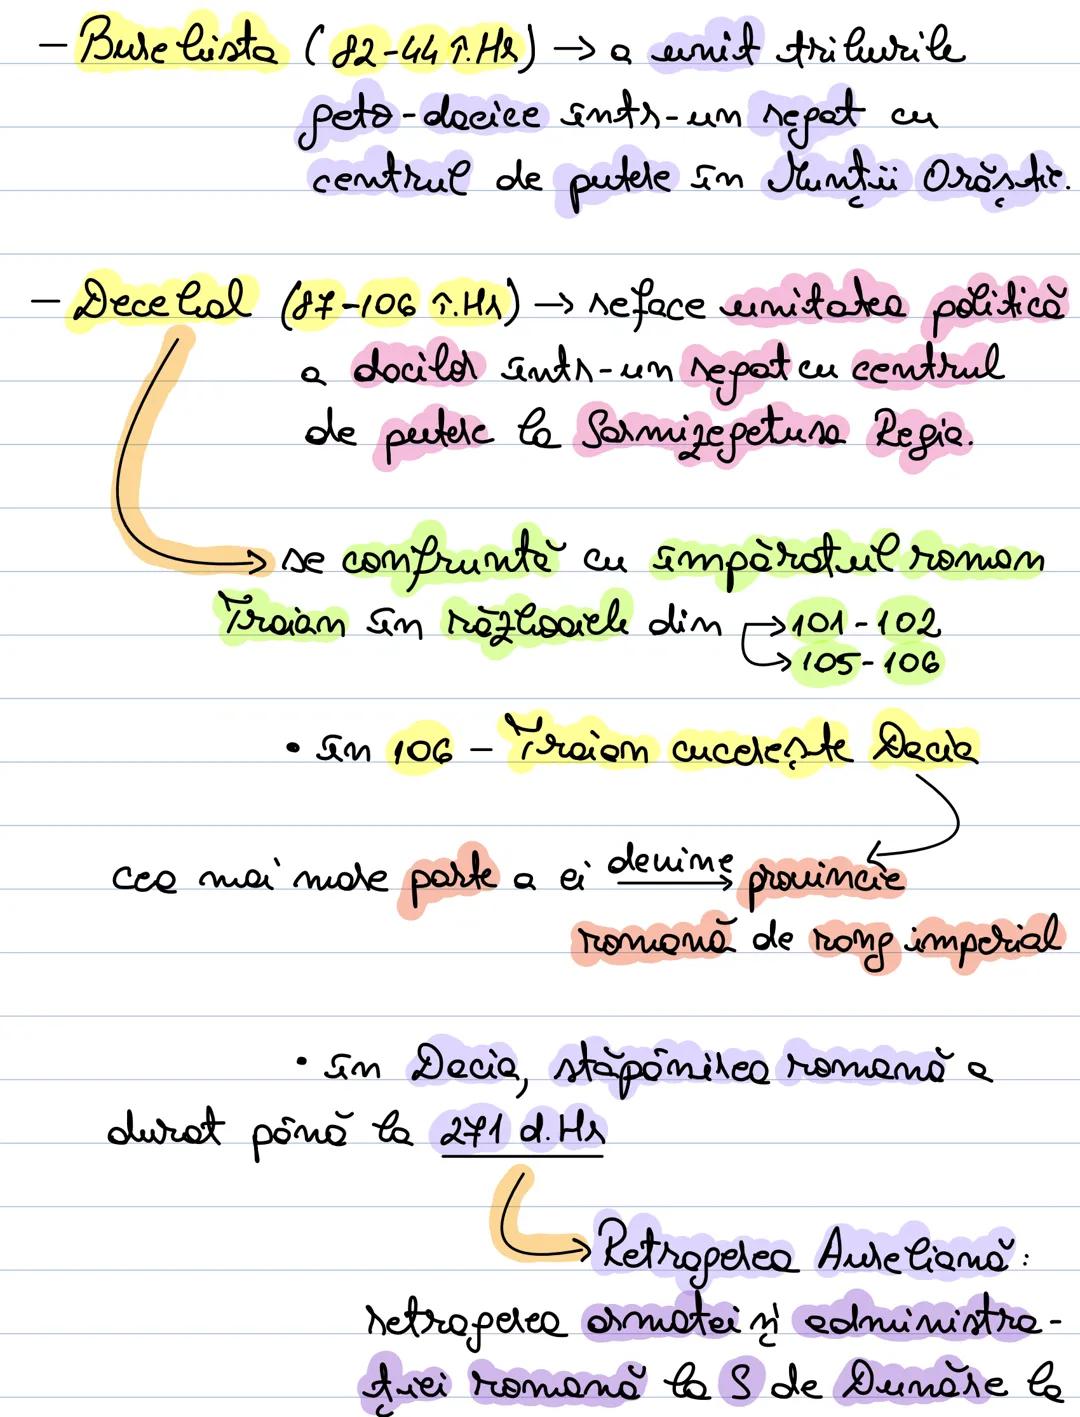 - Burebista (82-44 î.Hr) → a unit triburile
geto-dacice într-un regat cu
centrul de putere în Munții Orăștie.
- Decebal (87-106 î.Hr) → reface unitatea politică
a dacilor într-un regat cu centrul
de putere la Sarmizegetusa Regia.
→ se confruntă cu împăratul roman
Traian în războaiele din → 101-102
→ 105-106
• în 106 - Traian cucerește Dacia
cea mai mare parte a ei devine → provincie
romană de rang imperial
• în Dacia, stăpânirea romană a
durat până la 271 d.Hr
→ Retragerea Aureliană:
retragerea armatei și administra-
ției romană la S de Dunăre la